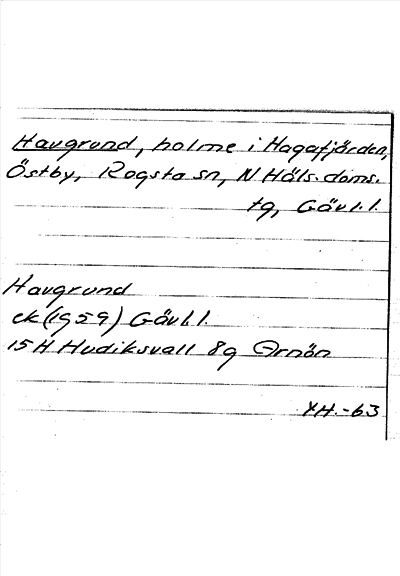 Havgrund, holme i Hagafjärden,
Östby, Rogsta sn, N Häls. doms.
tg, Gävl. l.
Havgrund
ek (1959) Gävl. l.
15H Hudiksvall 8g Arnön
YH.-63